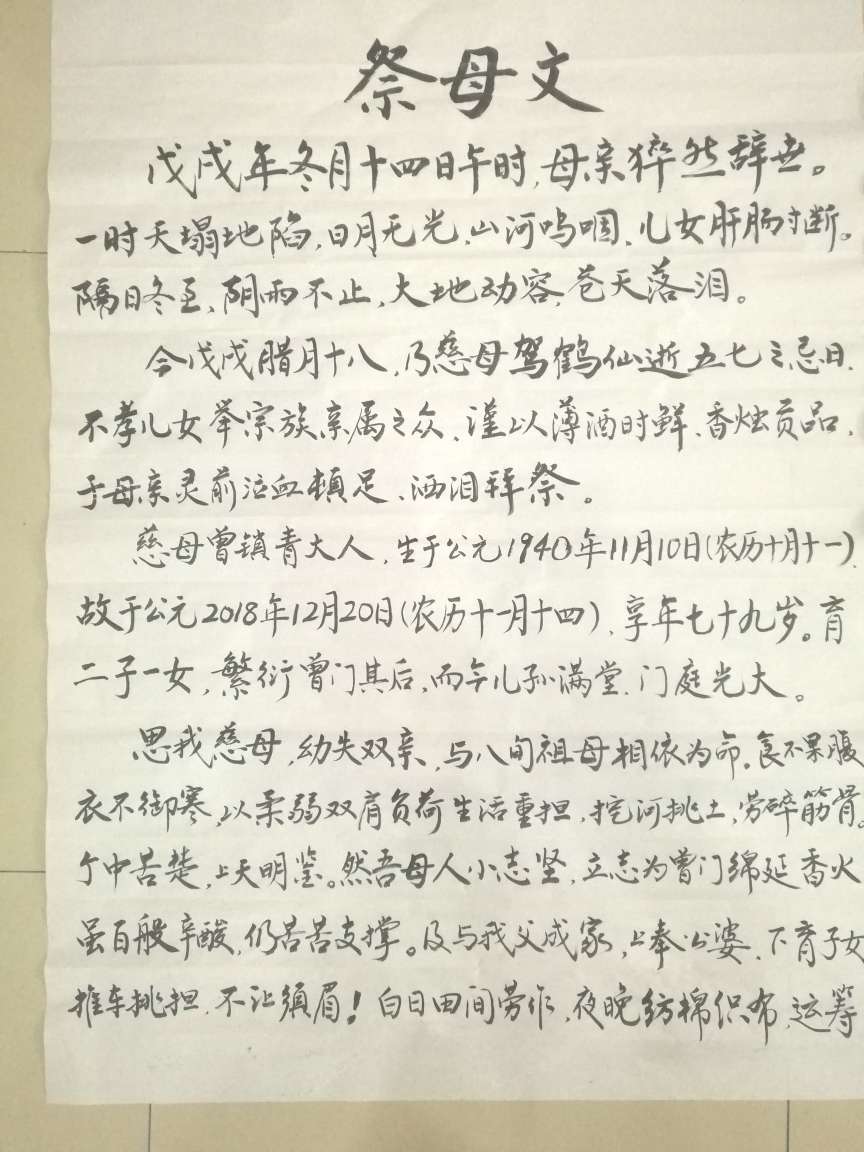 祭母文
戊戌年冬月十四日午时,母亲猝然辞世。
一时天塌地陷,日月无光、山河呜咽、儿女肝肠寸断。
隔日冬至,阴雨不止,大地动容,苍天落泪。
今戊戌腊月十八,乃慈母驾鹤仙逝五七之忌日,
不孝儿女举宗族亲属之众、谨以薄酒时鲜、香烛贡品,
于母亲灵前泣血顿足、洒泪拜祭。
慈母曾镇青大人,生于公元1940年11月10日(农历十月十一),
故于公元2018年12月20日(农历十一月十四),享年七十九岁。育
二子一女,繁衍曾门其后,而今儿孙满堂,门庭光大。
思我慈母,幼失双亲,与八旬祖母相依为命。食不果腹
衣不御寒,以柔弱双肩负荷生活重担,挖河挑土,劳碎筋骨。
个中苦楚,上天明鉴。然吾母人小志坚,立志为曾门绵延香火
虽百般辛酸,仍苦苦支撑。及与我父成家,上奉公婆,下育子女
推车挑担,不让须眉!白日田间劳作,夜晚纺棉织布,运筹